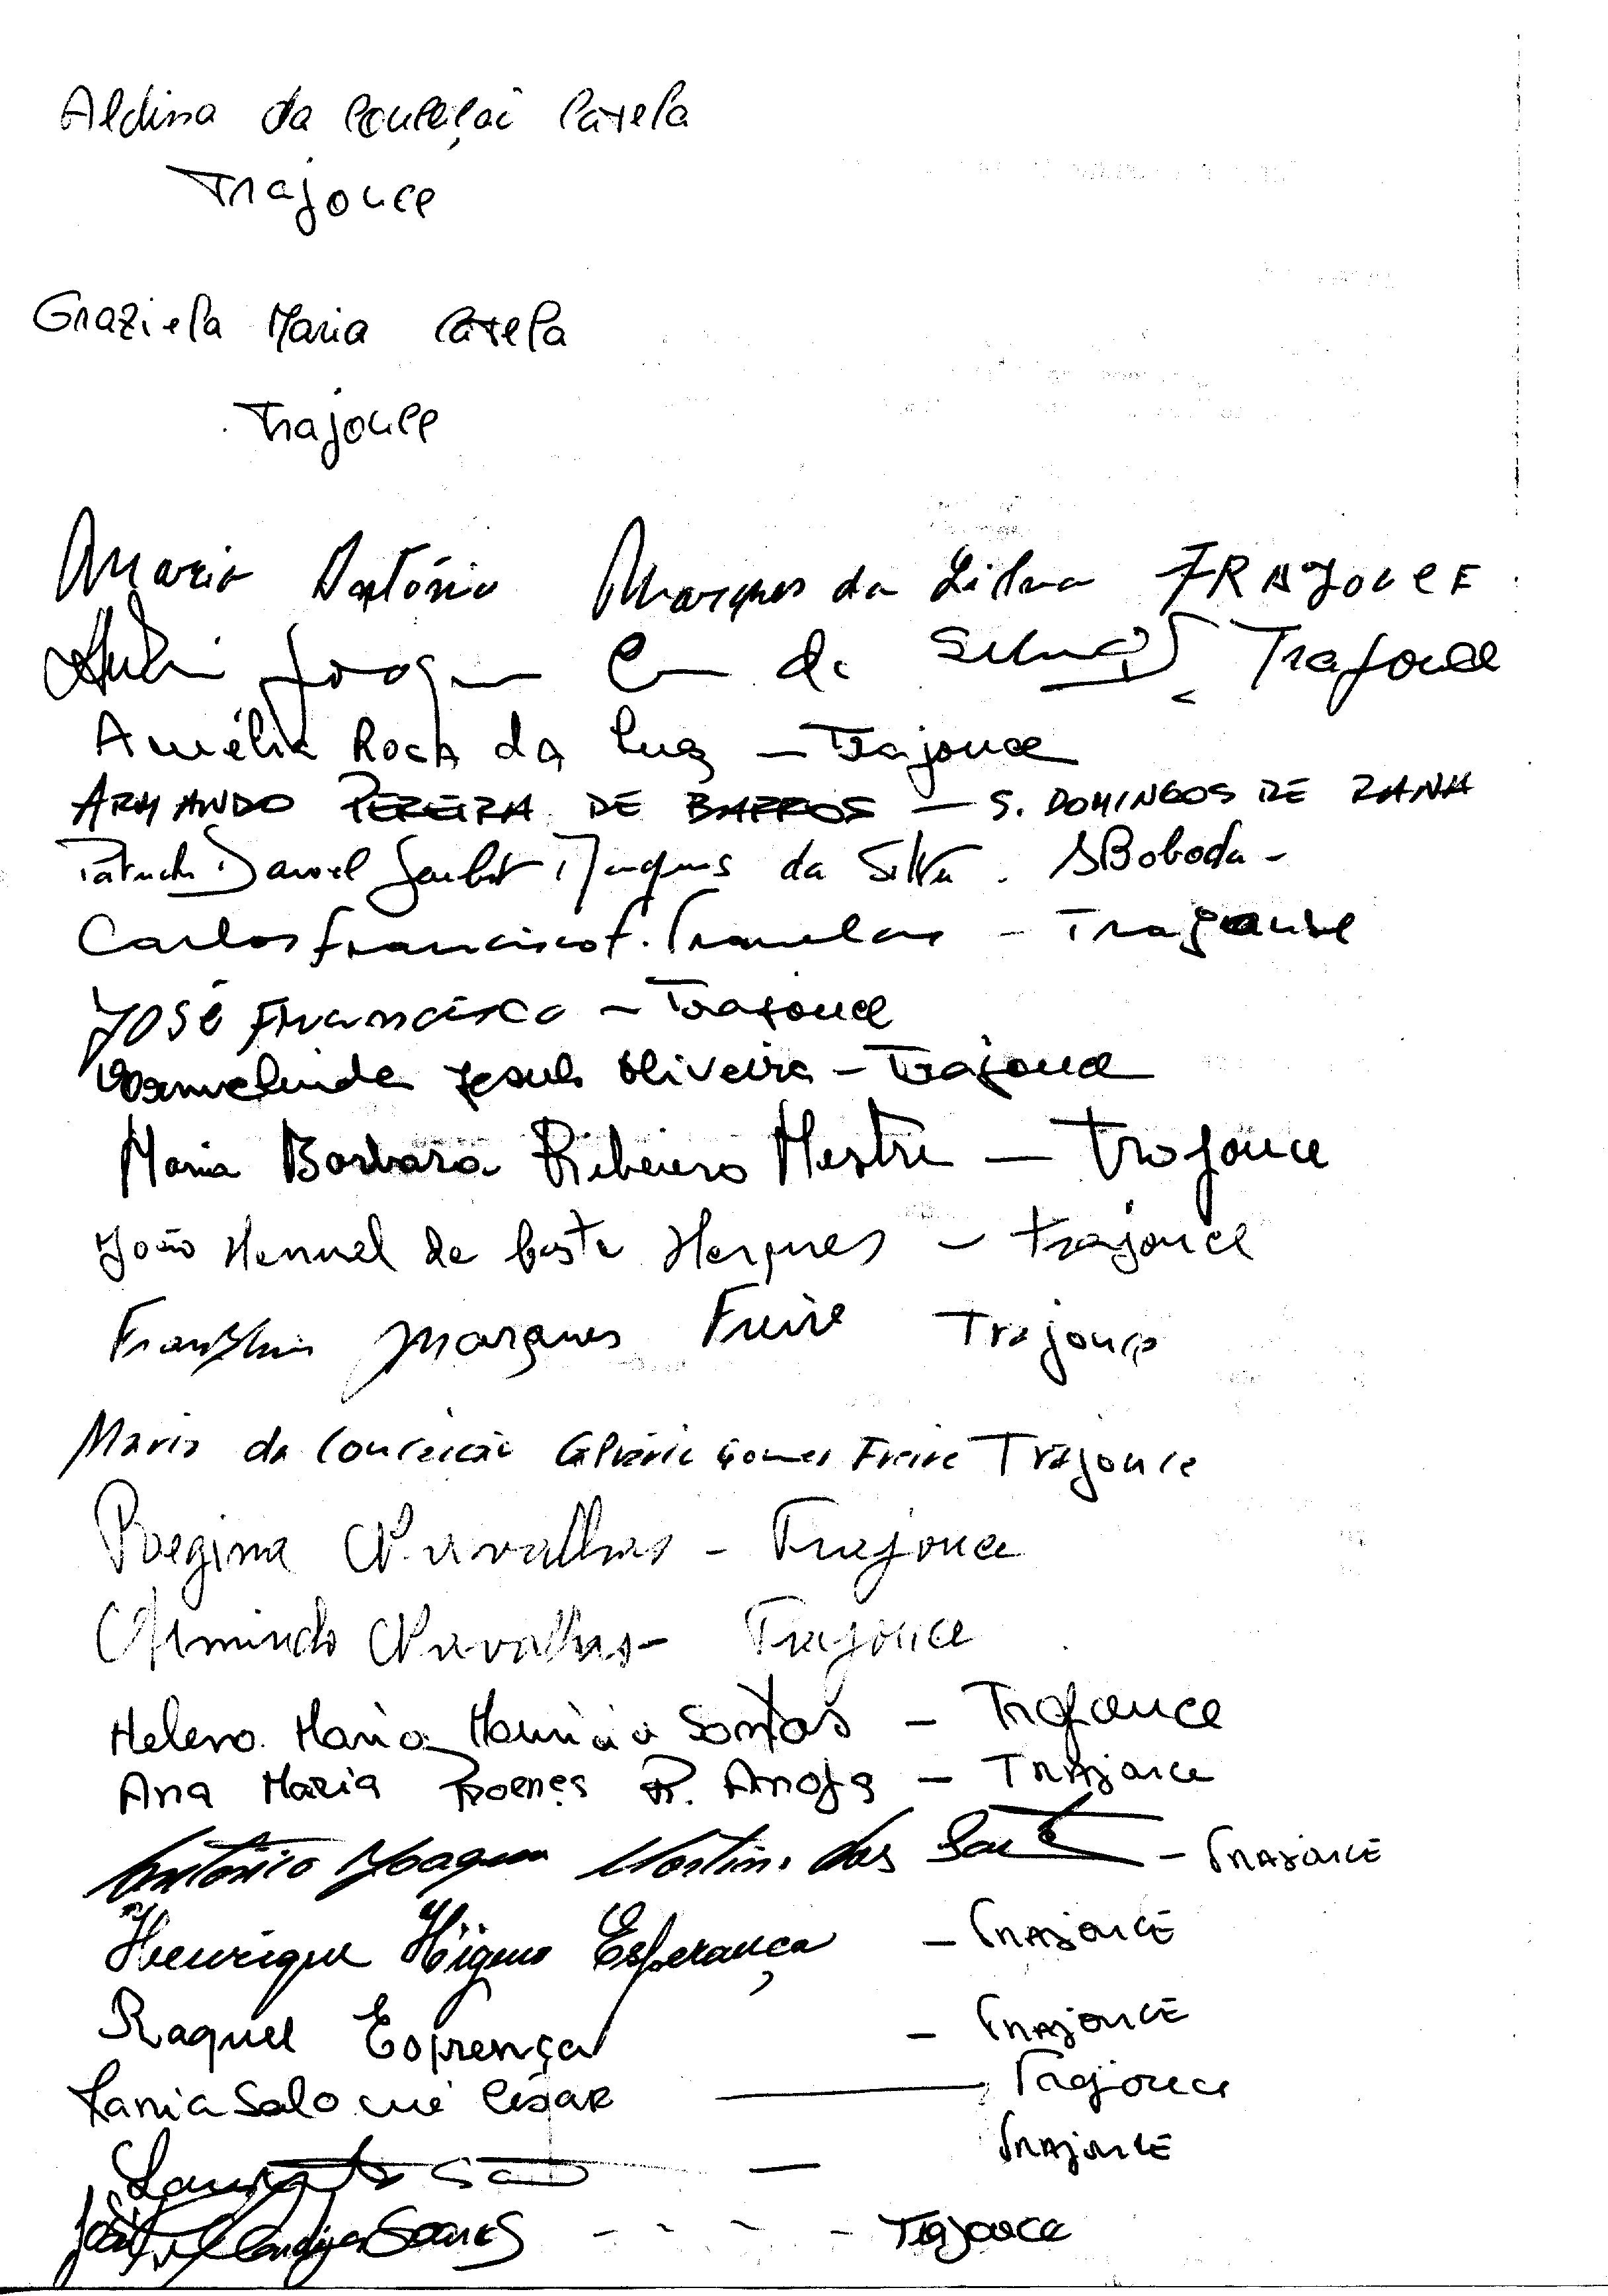 Aldina da Conceição Varela
Trajouce
Graziela Maria Varela
Trajouce
Mario António Marques da Silva TRAJOUCE
da Silva Trajouce
Amélia Rocha da Luz - Trajouce
ARMANDO PEREIRA DE BARROS - S. DOMINGOS DE RANA
Daniel Marques da Silva . Aboboda -
Carlos Francisco F. - Trajouce
JOSÉ Francisco - Trajouce
Jesus Oliveira - Trajouce
Maria Barbara Ribeiro Mestre - Trajouce
João Manuel da Costa Marques - Trajouce
Franklin Marques Freire Trajouce
Maria da Conceição Gomes Freire Trajouce
Regina Carvalhas - Trajouce
Armindo Carvalhas - Trajouce
Helena Maria Mauricio Santos - Trajouce
Ana Maria Proença R. Anoja - TRAJOUCE
António Joaquim Martins dos - TRAJOUCE
Henrique Higino Esperança - TRAJOUCE
Raquel Esprença - TRAJOUCE
Tania Salomé César - Trajouce
- TRAJOUCE
José Soares - - - - Trajouce